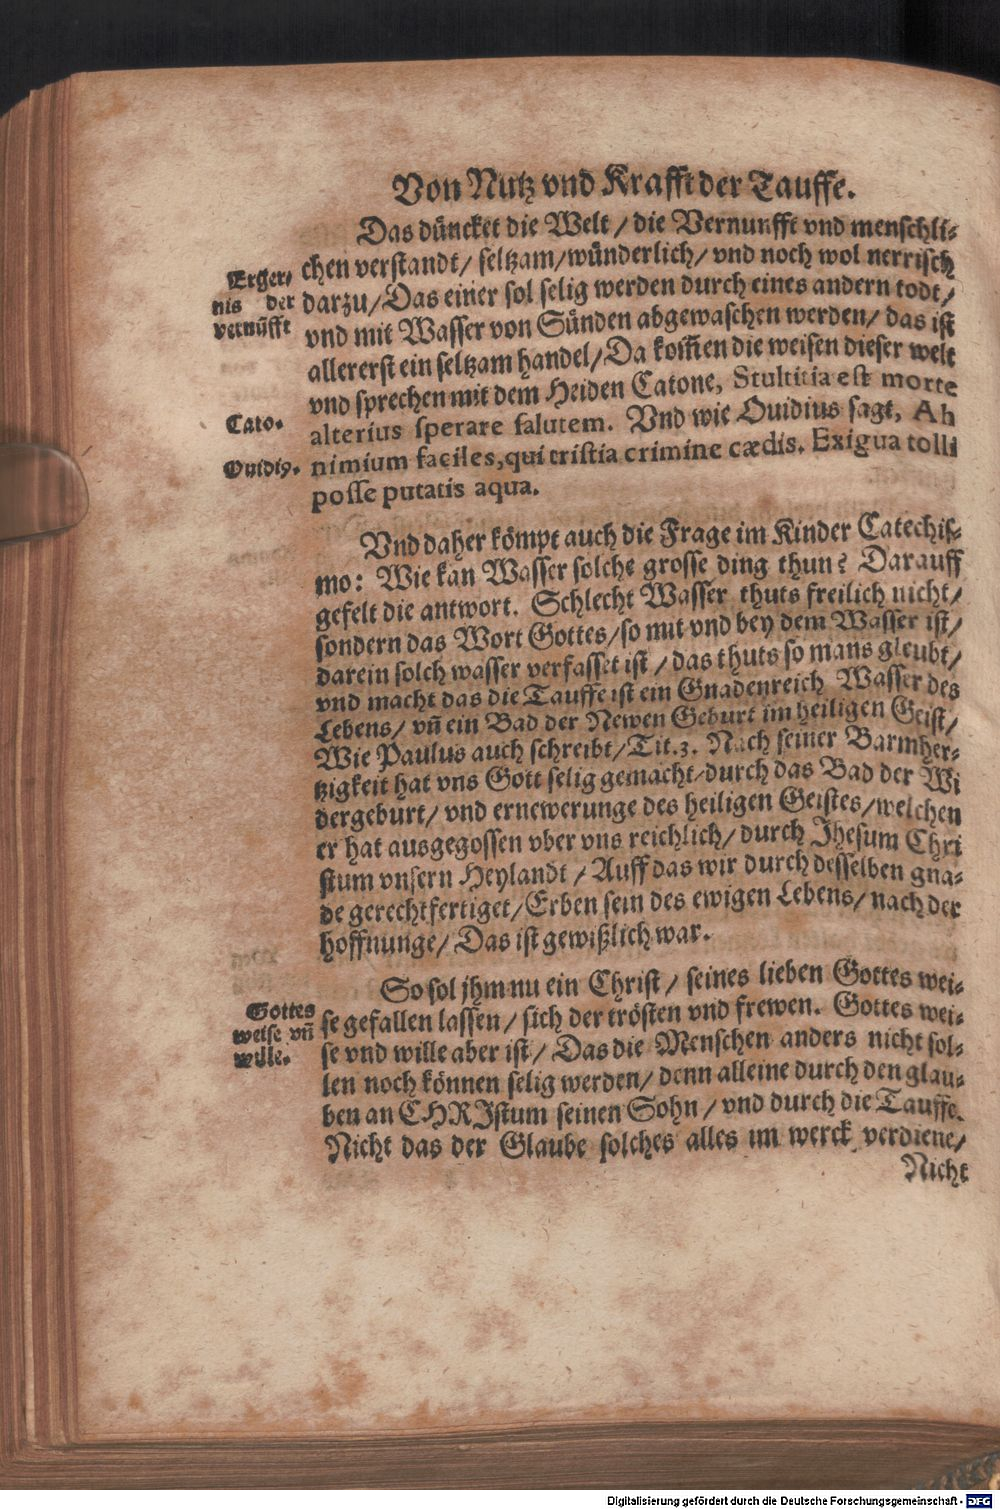 Von Nutz vnd Krafft der Tauffe.
Das düncket die Welt / die Vernunfft vnd menschli-
chen verstandt / seltzam / wünderlich / vnd noch wol nerrisch
darzu / Das einer sol selig werden durch eines andern todt /
vnd mit Wasser von Sünden abgewaschen werden / das ist
allererst ein seltzam handel / Da kom̃en die weisen dieser welt
vnd sprechen mit dem Heiden Catone, Stultitia est morte
alterius sperare salutem. Vnd wie Ouidius sagt, Ah
nimium faciles, qui tristia crimine cædis. Exigua tolli
posse putatis aqua.
Erger-
nis der
vernüfft
Cato.
Ouidiꝰ.
Vnd daher kömpt auch die Frage im Kinder Catechis-
mo: Wie kan Wasser solche grosse ding thun? Darauff
gefelt die antwort. Schlecht Wasser thuts freilich nicht /
sondern das Wort Gottes / so mit vnd bey dem Wasser ist /
darein solch wasser verfasset ist / das thuts so mans gleubt /
vnd macht das die Tauffe ist ein Gnadenreich Wasser des
Lebens / vñ ein Bad der Newen Geburt im heiligen Geist /
Wie Paulus auch schreibt / Tit. 3. Nach seiner Barmher-
tzigkeit hat vns Gott selig gemacht / durch das Bad der Wi
dergeburt / vnd ernewerunge des heiligen Geistes / welchen
er hat ausgegossen vber vns reichlich / durch Jhesum Chri
stum vnsern Heylandt / Auff das wir durch desselben gna-
de gerechtfertiget / Erben sein des ewigen Lebens / nach der
hoffnunge / Das ist gewißlich war.
So sol jhm nu ein Christ / seines lieben Gottes wei-
se gefallen lassen / sich der trösten vnd frewen. Gottes wei-
se vnd wille aber ist / Das die Menschen anders nicht sol-
len noch können selig werden / denn alleine durch den glau-
ben an CHRJstum seinen Sohn / vnd durch die Tauffe.
Nicht das der Glaube solches alles im werck verdiene /
Gottes
weise vñ
wille.
Nicht
Digitalisierung gefördert durch die Deutsche Forschungsgemeinschaft - DFG